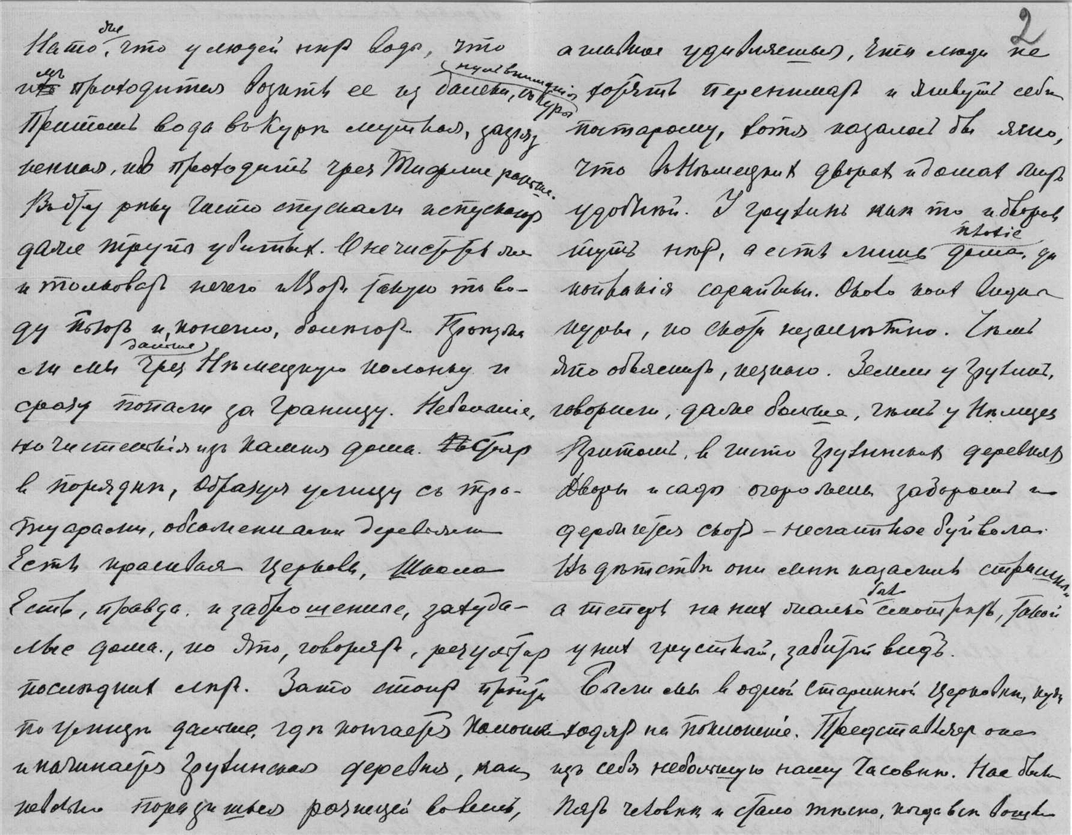 2
На то, что у людей нет воды, что
им приходится возить ее из далека, из Куры
Притом вода в Куре мутная, загряз
ненная, но проходит чрез Тифлис раньше.
В эту реку часто спускали и спускают
даже трупы убитых. О нечистотах
и толковать нечего. И вот такую то во-
ду пьют и, конечно, болеют. Проезжа
ли мы дальше чрез Немецкую колонку и
сразу попали за границу. Небольшие,
но чистенькия из камня дома.
в порядке, образуя улицу с тро-
туарами, обсаженными деревьями
Есть красивая церковь, школа
Есть, правда, и заброшенные, захуда-
лые дома, но это, говорят, результат
последних лет. Зато стоит пройти
по улице дальше, где кончается колонка
и начинается Грузинская деревня, как
невольно поразишься разницей во всем,
а главное удивляешься, что люди не
хотят перенимать и живут себе
постарому, хотя казалось бы ясно,
что в Немецких дворах и домах жить
удобней. У грузин как то и дворов
тут нет, а есть лишь плохие дома, да
сарайчики. Около них видны
куры, но скота незаметно. Чем
это объяснить, незнаю. Земли у грузин,
говорили, даже больше, чем у Немцев
Притом, в чисто Грузинских деревнях
дворы и сады огорожены забором и
держится скот – несчастные буйвола.
Въ детстве они мне казались страшными
а теперь на них жалко смотреть, такой
у них грустный, забитый вид.
Были мы в одной старинной церковке, куда
ходят на поклонение. Представляет она
из себя небольшую нашу часовню. Нас было
пять человек и стало тесно, когда все вошли